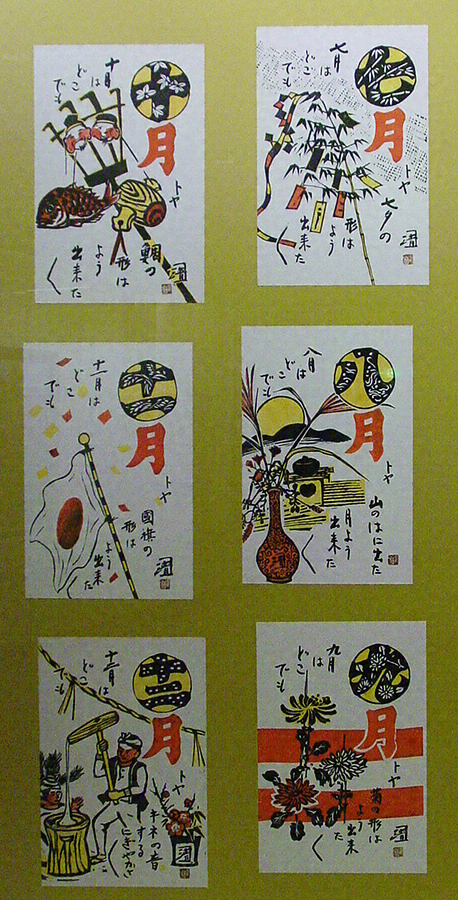 七月
七月は
どこ
でも
トヤ
七夕の
形は
よう
出来た
八月
八月は
どこ
でも
トヤ
山のはに出た
月よう
出来た
く
九月
九月
は
どこ
でも
トヤ
菊の形は
よう
出来
た
く
十月
十月
は
どこ
でも
トヤ
鯛の
形は
よう
出来た
く
十一月
十一月は
どこ
でも
トヤ
國旗の
形は
よう
出来た
く
十二月
十二月は
どこ
でも
トヤ
キネの音
するする
にぎやかさ